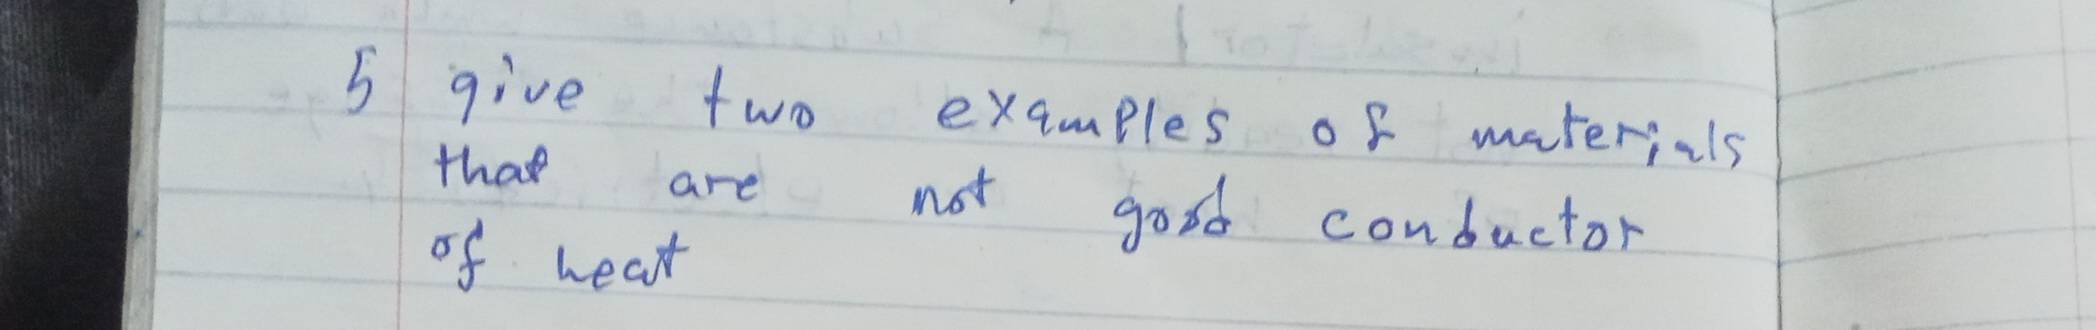 5 give two examples of materials
that are not good conductor
of heat